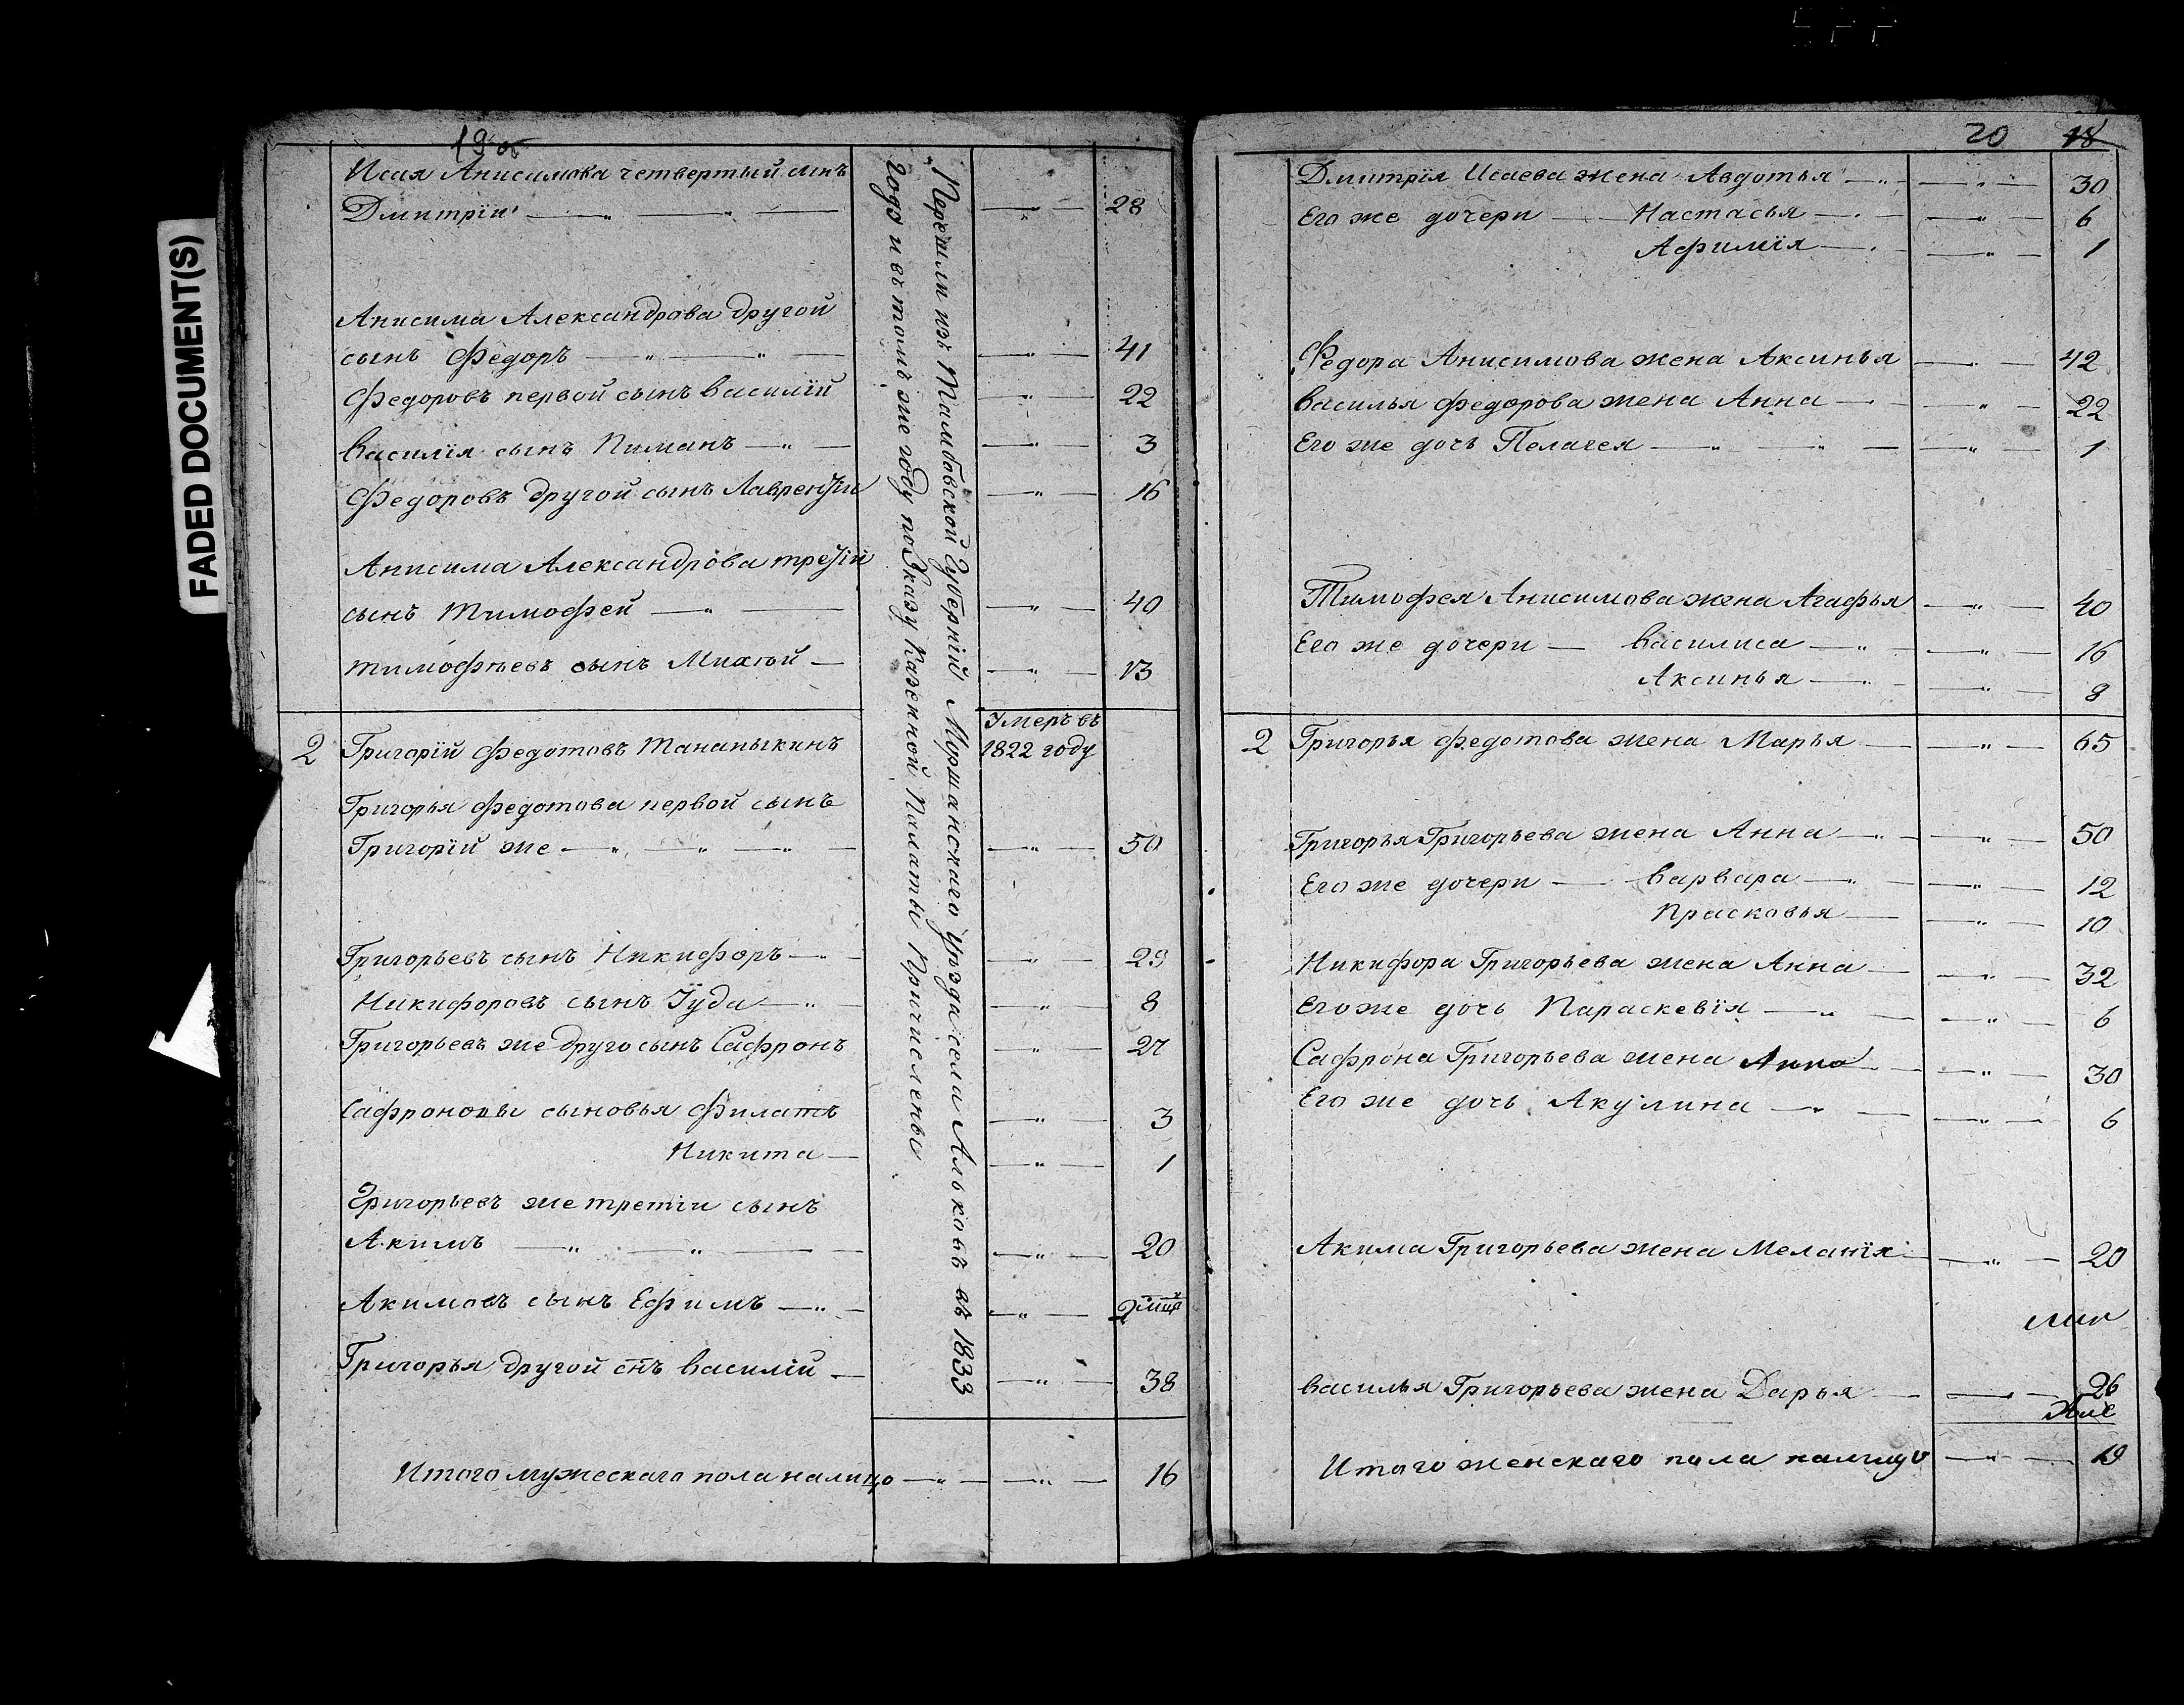 FADED DOCUMENT(S)
19 об
Исая Анисимова четвертый сынъ
Дмитрiи — „ — „ — — „ — 28
Анисима Александрова другой
сынъ Федоръ — „ — „ — — „ — 41
Федоровъ первой сынъ Василiй — „ — 22
Василiя сынъ Пиманъ — „ — — „ — 3
Федоровъ другой сынъ Лаврентiи — „ — 16
Анисима Александрова третiй
сынъ Тимофей — „ — — „ — 40
Тимофѣевъ сынъ Михѣй — — „ — 13
2 Григорiй Федотовъ Тананыкинъ Умеръ въ 1822 году
Григорья Федотова первой сынъ
Григорiй же — „ — „ — „ — — „ — 50
Григорьевъ сынъ Никифоръ — „ — — „ — 29
Никифоровъ сынъ Iуда — „ — — „ — 8
Григорьевъ же друго сынъ Сафронъ — „ — 27
Сафроновы сыновья Филатъ — „ — 3
Никита — — „ — 1
Григорьевъ же третiи сынъ
Акимъ — „ — „ — — — „ — 20
Акимовъ сынъ Ефимъ — „ — — „ — 2 мца
Григорья другой снъ Василiй — — „ — 38
Итого мужескаго пола налицо — „ — — „ — 16
Перешли изъ Тамбовской Губернiй Моршанскаго уѣзда села Альковъ въ 1833
годэ и въ томъ же году по Указу Казенной Палаты Причислены
20 18
Дмитрiя Исаева жена Авдотья — „ — — „ — 30
Его же дочери — Настасья — „ — — „ — 6
Афимiя — „ — — „ — 1
Федора Анисимова жена Аксинья — „ — 42
Василья Федорова жена Анна — „ — — „ — 22
Его же дочь Пелагея — „ — „ — — „ — 1
Тимофея Анисимова жена Агафья — „ — 40
Его же дочери — Василиса — „ — — „ — 16
Аксинья — „ — — „ — 8
2 Григорья Федотова жена Марья — — „ — 65
Григорья Григорьева жена Анна — „ — — „ — 50
Его же дочери — Варвара — „ — — „ — 12
Прасковья — — „ — 10
Никифора Григорьева жена Анна — — „ — 32
Его же дочь Параскевiя — „ — — „ — 6
Сафрона Григорьева жена Анна — — „ — 30
Его же дочь Акулина — „ — — „ — 6
Акима Григорьева жена Меланiя — — „ — 20
Василья Григорьева жена Дарья — — „ — 26
Итого женскаго пола налицо — „ — 19